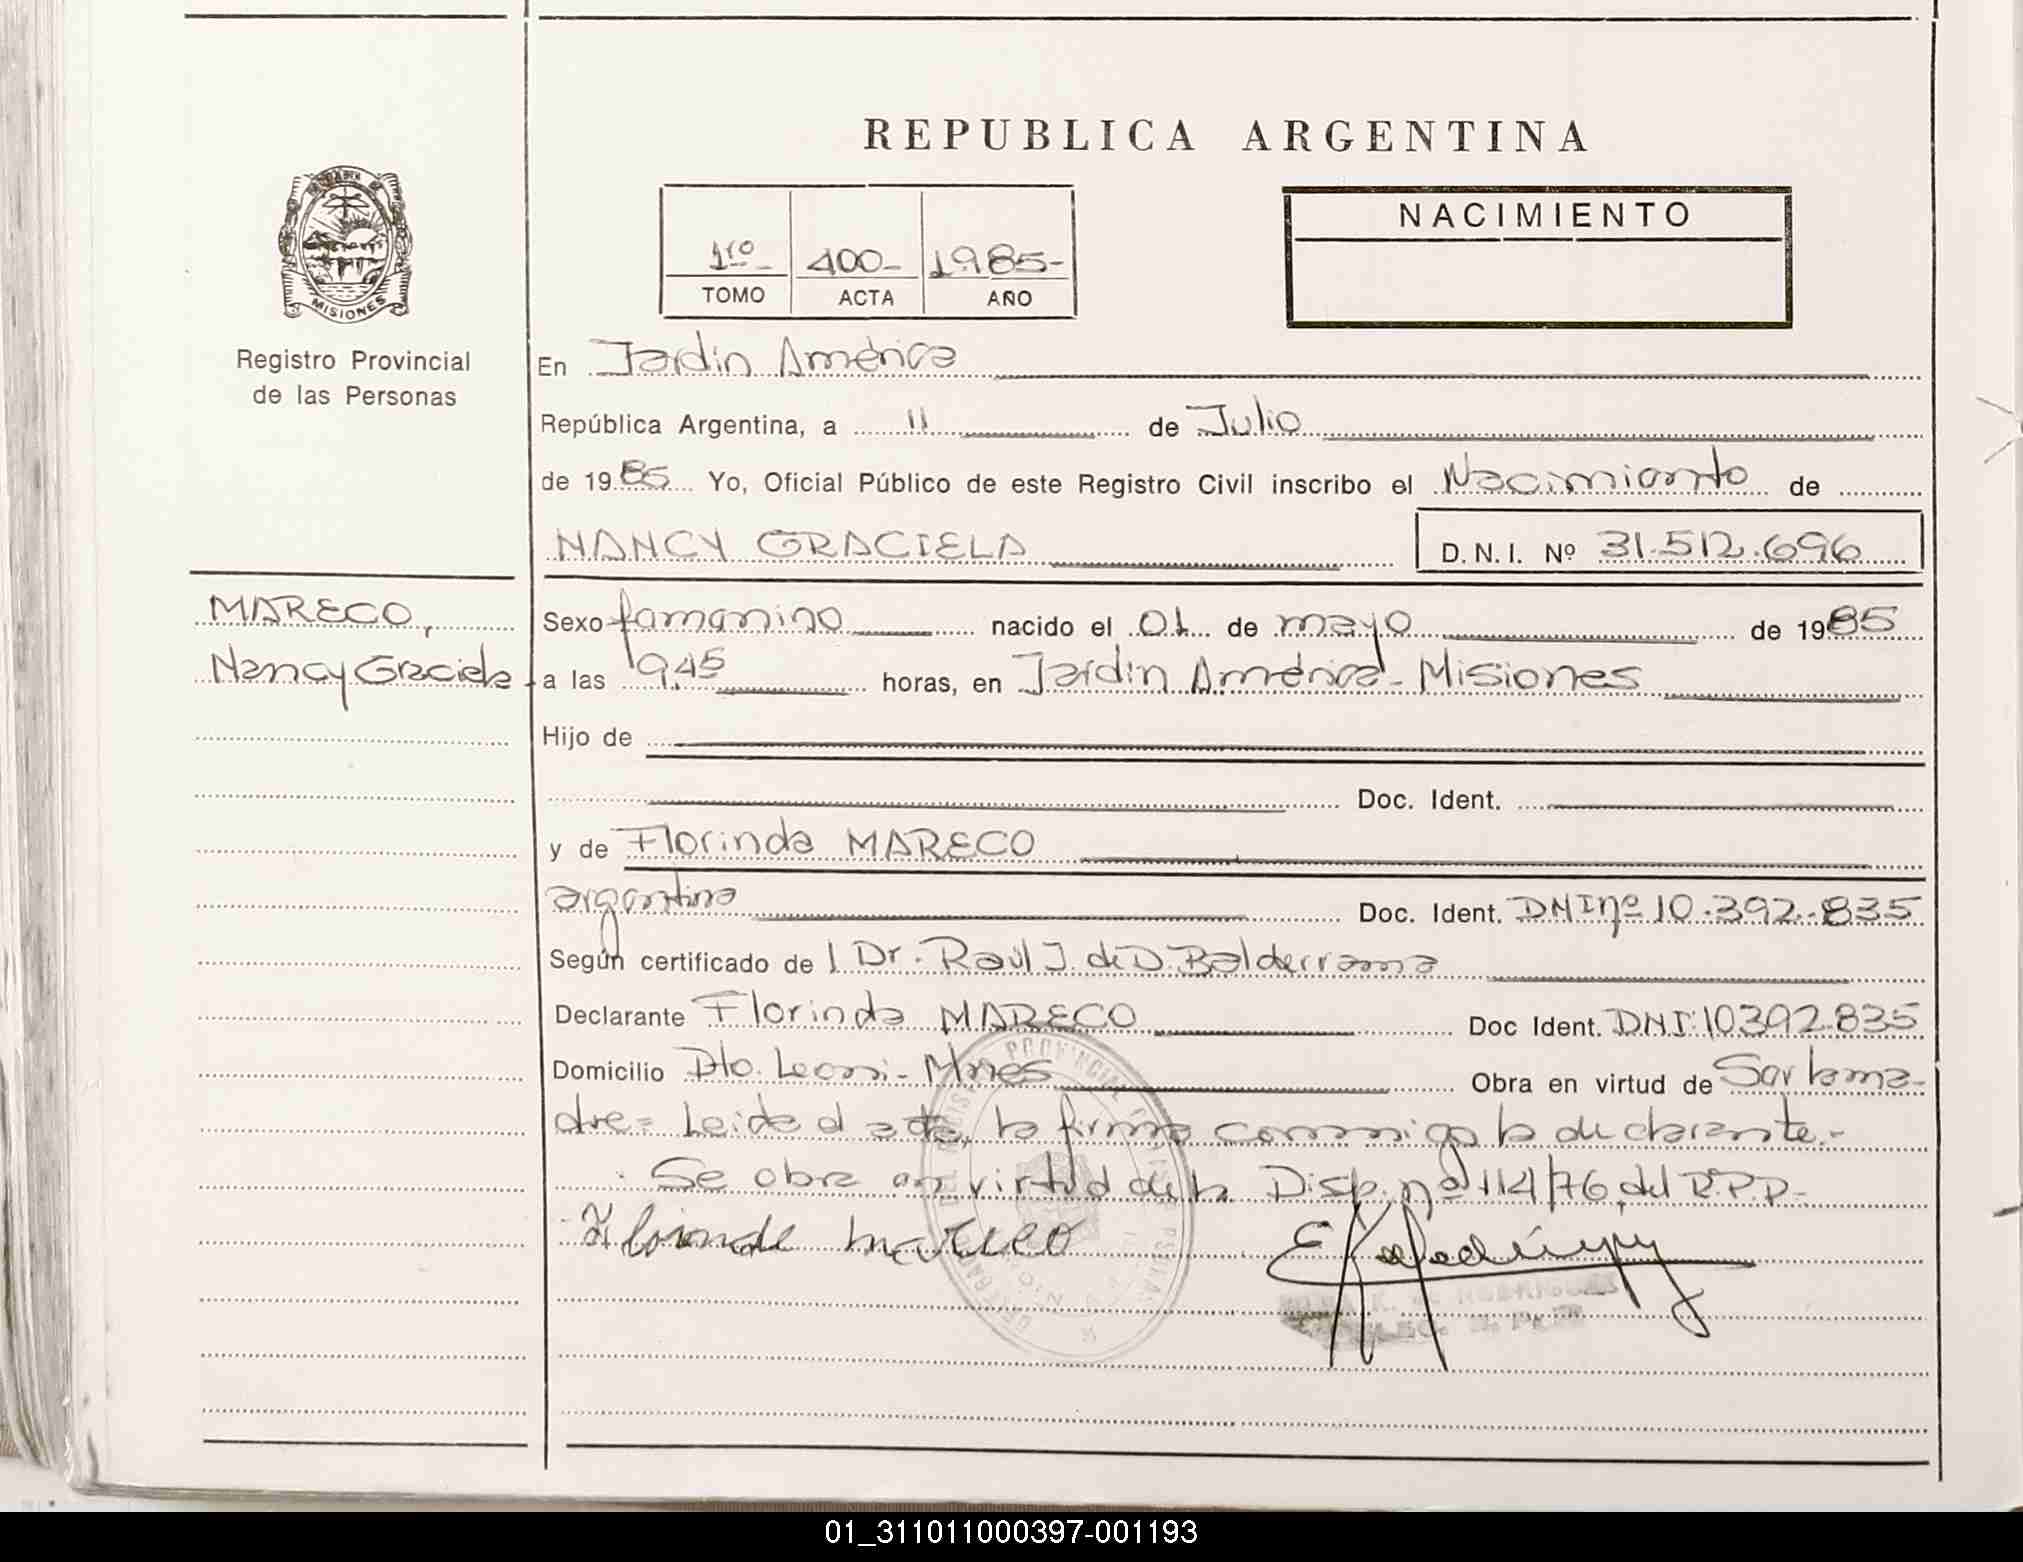 REPUBLICA ARGENTINA
NACIMIENTO
1ro 400 1985
TOMO ACTA AÑO
MISIONES
Registro Provincial
de las Personas
En Jardin América
República Argentina, a 11 de Julio
de 1985 Yo, Oficial Público de este Registro Civil inscribo el Nacimiento de
NANCY GRACIELA D.N.I. Nº 31.512.696
MARECO,
Nancy Graciela
Sexo femenino nacido el 01 de mayo de 1985
a las 9,45 horas, en Jardin América - Misiones
Hijo de
Doc. Ident.
y de Florinda MARECO
argentina Doc. Ident. DNI nº 10.392.835
Según certificado de l Dr. Raúl J. de D. Balderrama
Declarante Florinda MARECO Doc Ident. DNI: 10392.835
Domicilio Pto. Leoni - Mnes Obra en virtud de Ser la ma-
dre= Leida el acta, la firma conmigo la declarante.-
Se obra en virtud de la Disp. nº 114/76 del R.P.P.-
Florinda Mareco
01_311011000397-001193